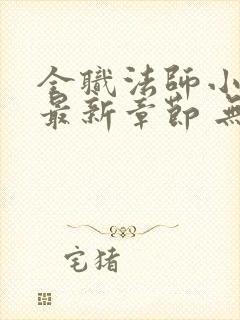 全職法師小
最新章節 無
宅猪